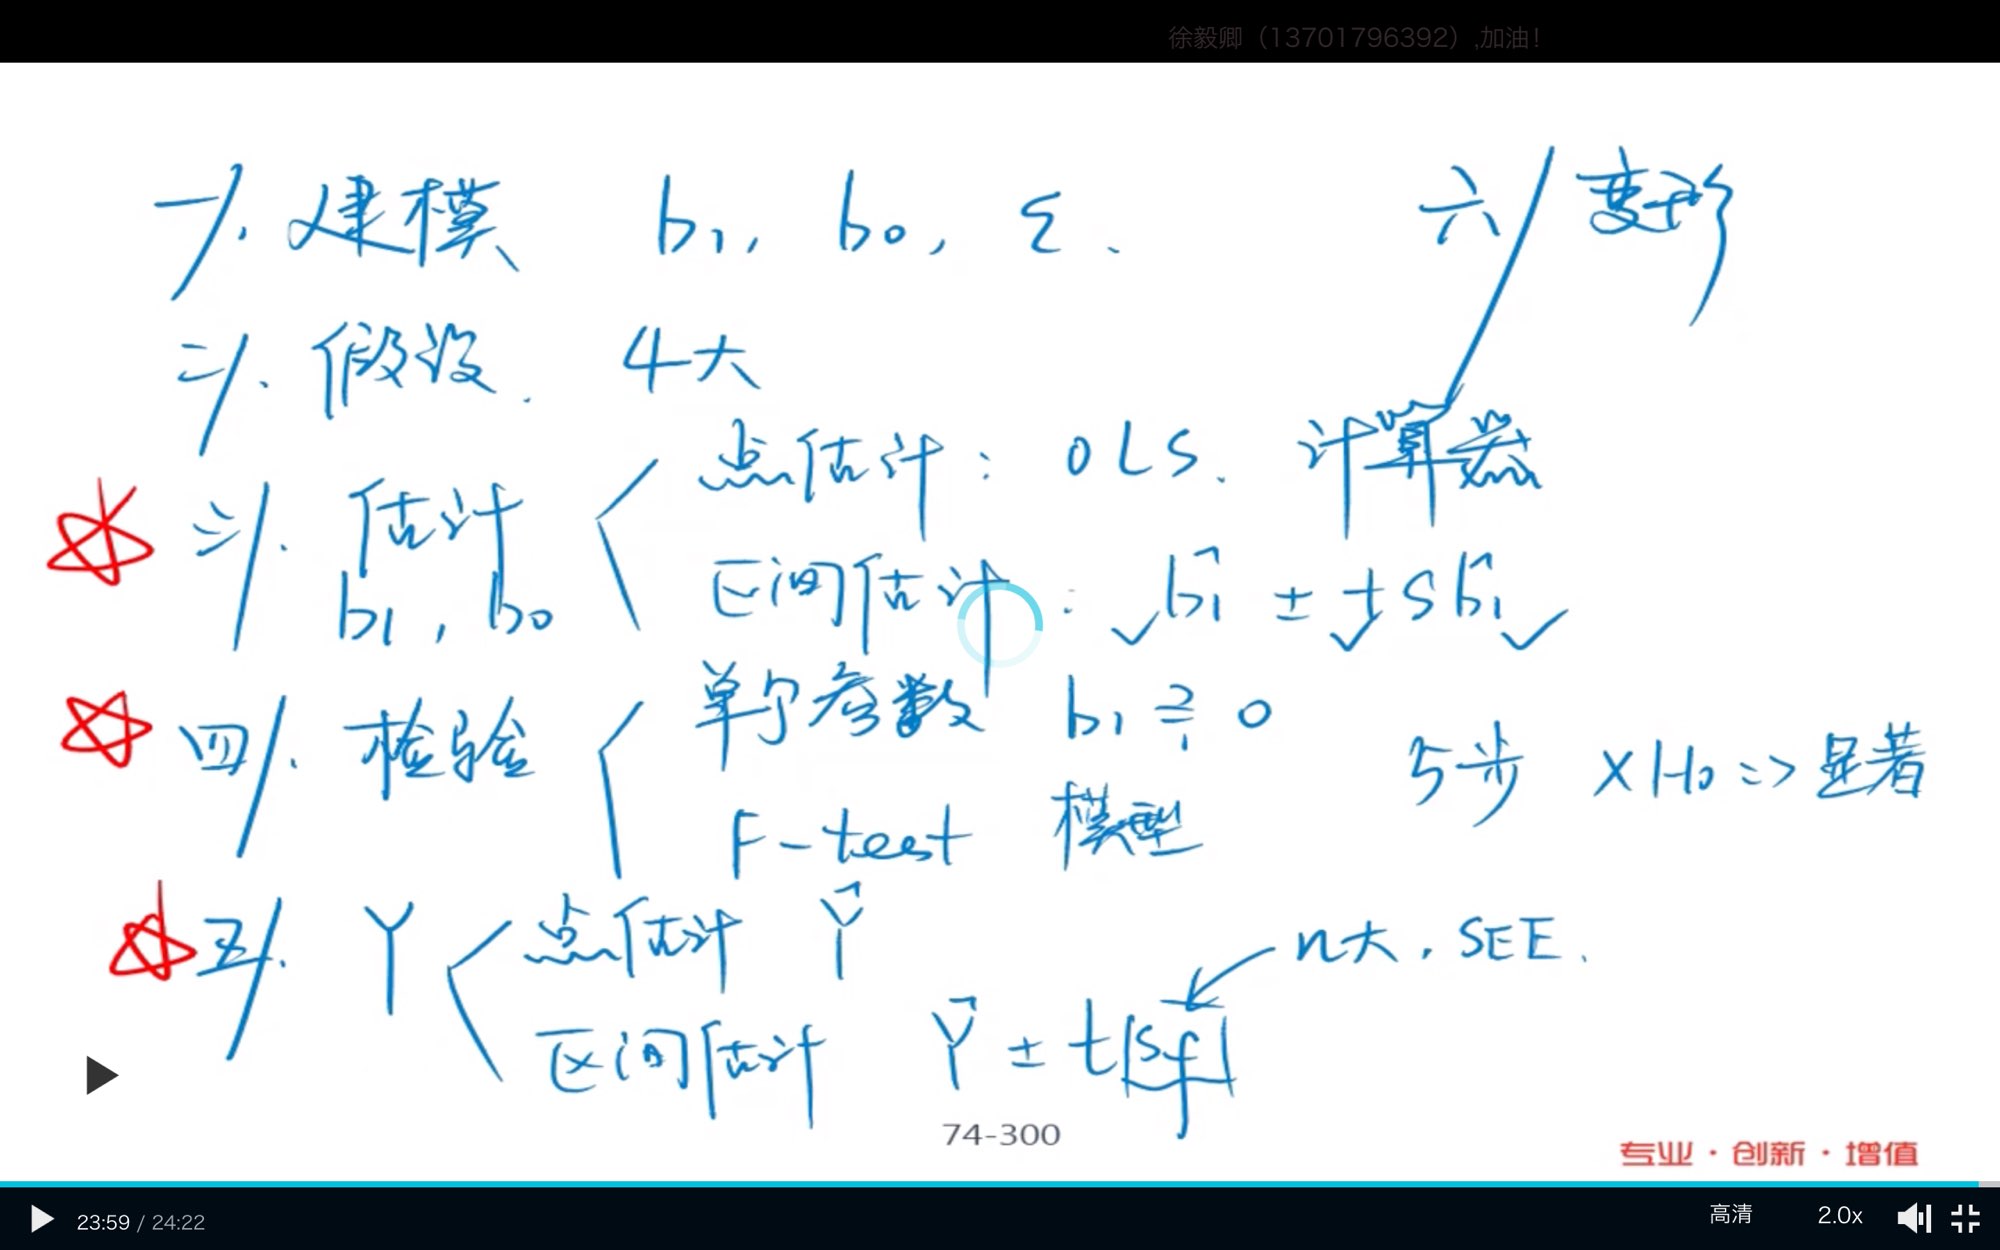 徐毅卿（13701796392）,加油！
一/. 建模 b1, b0, ε.
六/ 变形
二/. 假设. 4大
三/. 估计 b1, b0
点估计: OLS. 计算器
区间估计: b̂1 ± t Sb̂1
四/. 检验
单个参数 b1 ≟ 0
F-test 模型
5步 XH0 => 显著
五/. Y
点估计 Ŷ
n大, SEE.
区间估计 Ŷ ± t Sf
74-300
专业·创新·增值
23:59 / 24:22
高清 2.0x